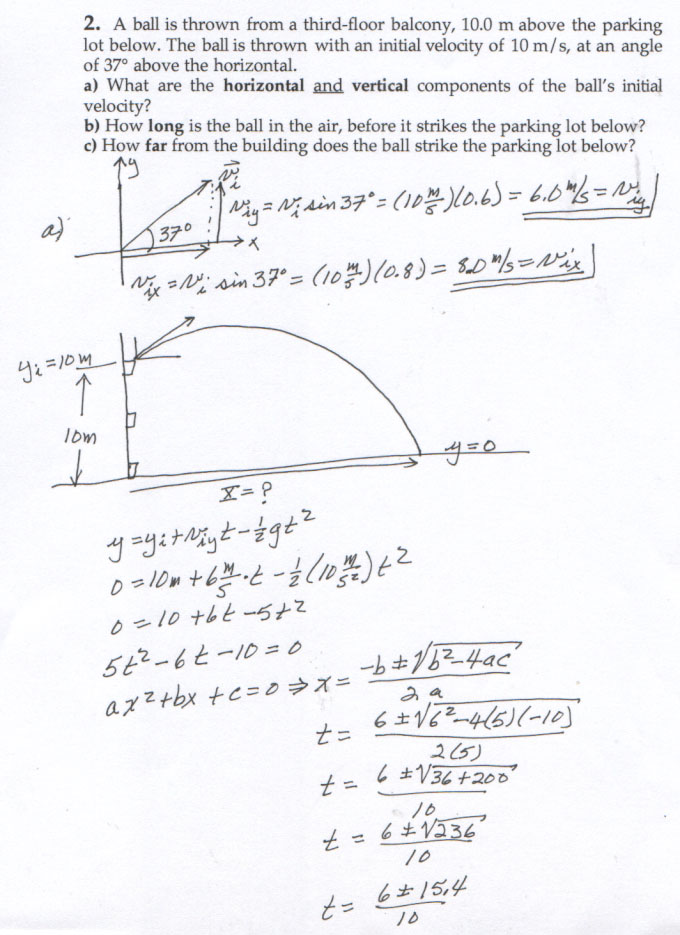 2. A ball is thrown from a third-floor balcony, 10.0 m above the parking
lot below. The ball is thrown with an initial velocity of 10 m/s, at an angle
of 37° above the horizontal.
a) What are the horizontal and vertical components of the ball's initial
velocity?
b) How long is the ball in the air, before it strikes the parking lot below?
c) How far from the building does the ball strike the parking lot below?
y
v⃗i
a)
37°
x
viy = vi sin 37° = (10 m/s)(0.6) = 6.0 m/s = viy
vix = vi sin 37° = (10 m/s)(0.8) = 8.0 m/s = vix
yi = 10m
10m
y = 0
X = ?
y = yi + viyt - ½gt²
0 = 10m + 6 m/s · t - ½(10 m/s²)t²
0 = 10 + 6t - 5t²
5t² - 6t - 10 = 0
ax² + bx + c = 0 ⇒ x = (-b ± √(b² - 4ac))/2a
t = (6 ± √(6² - 4(5)(-10)))/2(5)
t = (6 ± √(36 + 200))/10
t = (6 ± √236)/10
t = (6 ± 15.4)/10